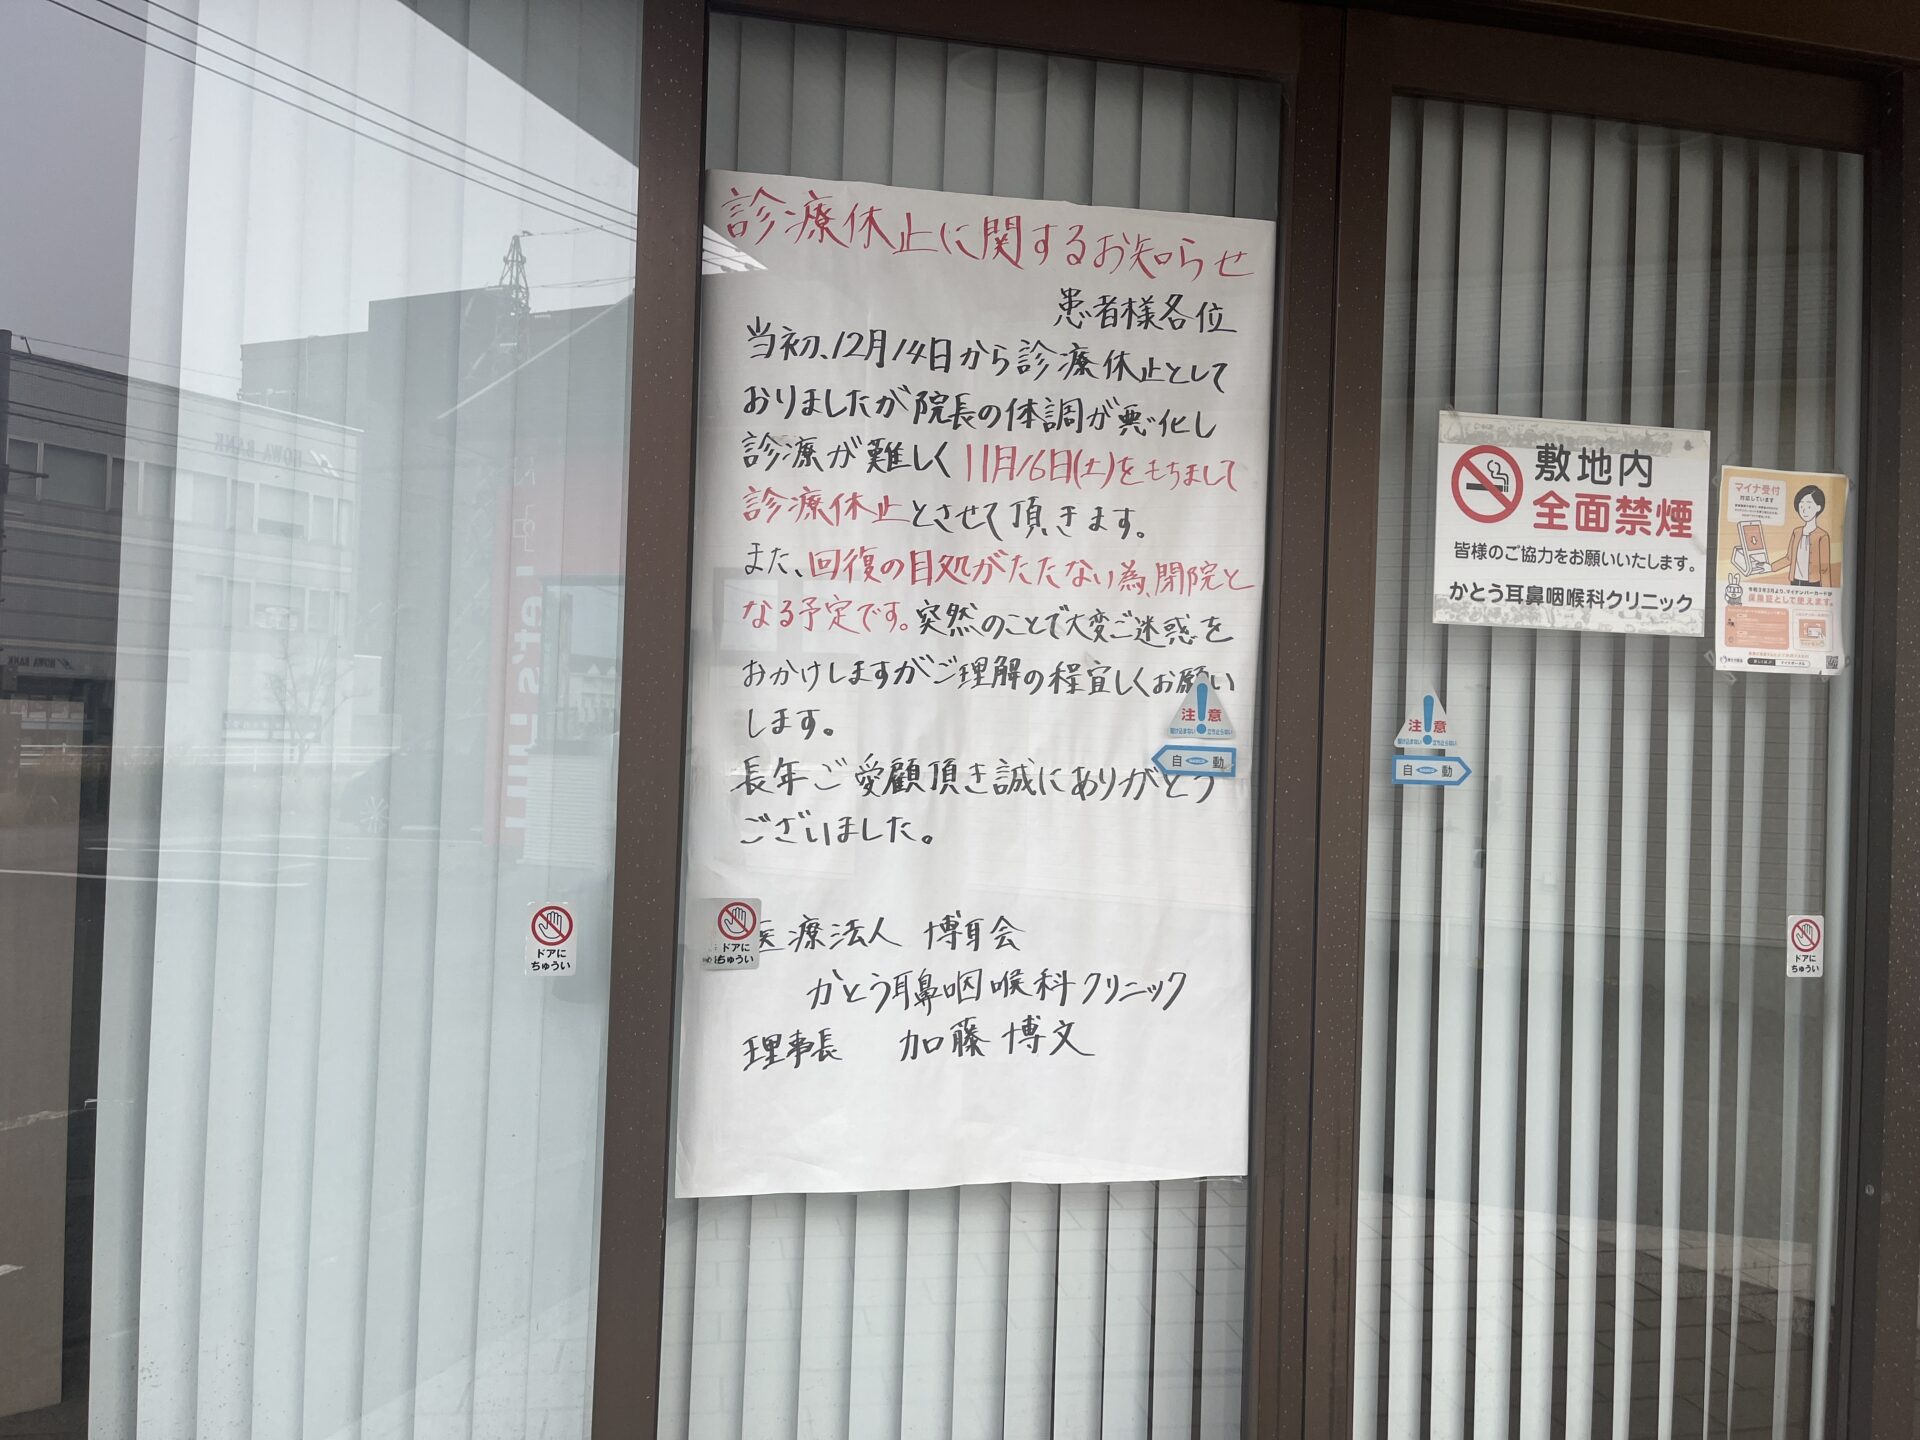 診療休止に関するお知らせ
患者様各位
当初、12月14日から診療休止として
おりましたが院長の体調が悪化し
診療が難しく11月16日(土)をもちまして
診療休止とさせて頂きます。
また、回復の目処がたたない為、閉院と
なる予定です。突然のことで大変ご迷惑を
おかけしますがご理解の程宜しくお願い
します。
長年ご愛顧頂き誠にありがとう
ございました。
医療法人 博耳会
かとう耳鼻咽喉科クリニック
理事長 加藤博文
敷地内
全面禁煙
皆様のご協力をお願いいたします。
かとう耳鼻咽喉科クリニック
マイナ受付
対応しています
令和3年3月より、マイナンバーカードが
保険証として使えます。
注意
駆け込まない 立ち止らない
自動
注意
駆け込まない 立ち止らない
自動
ドアに
ちゅうい
ドアに
ちゅうい
ドアに
ちゅうい
HOWA BANK
HOWA BANK